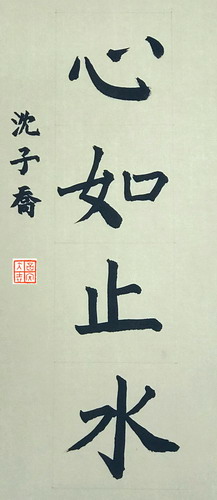 心如止水
沈子喬